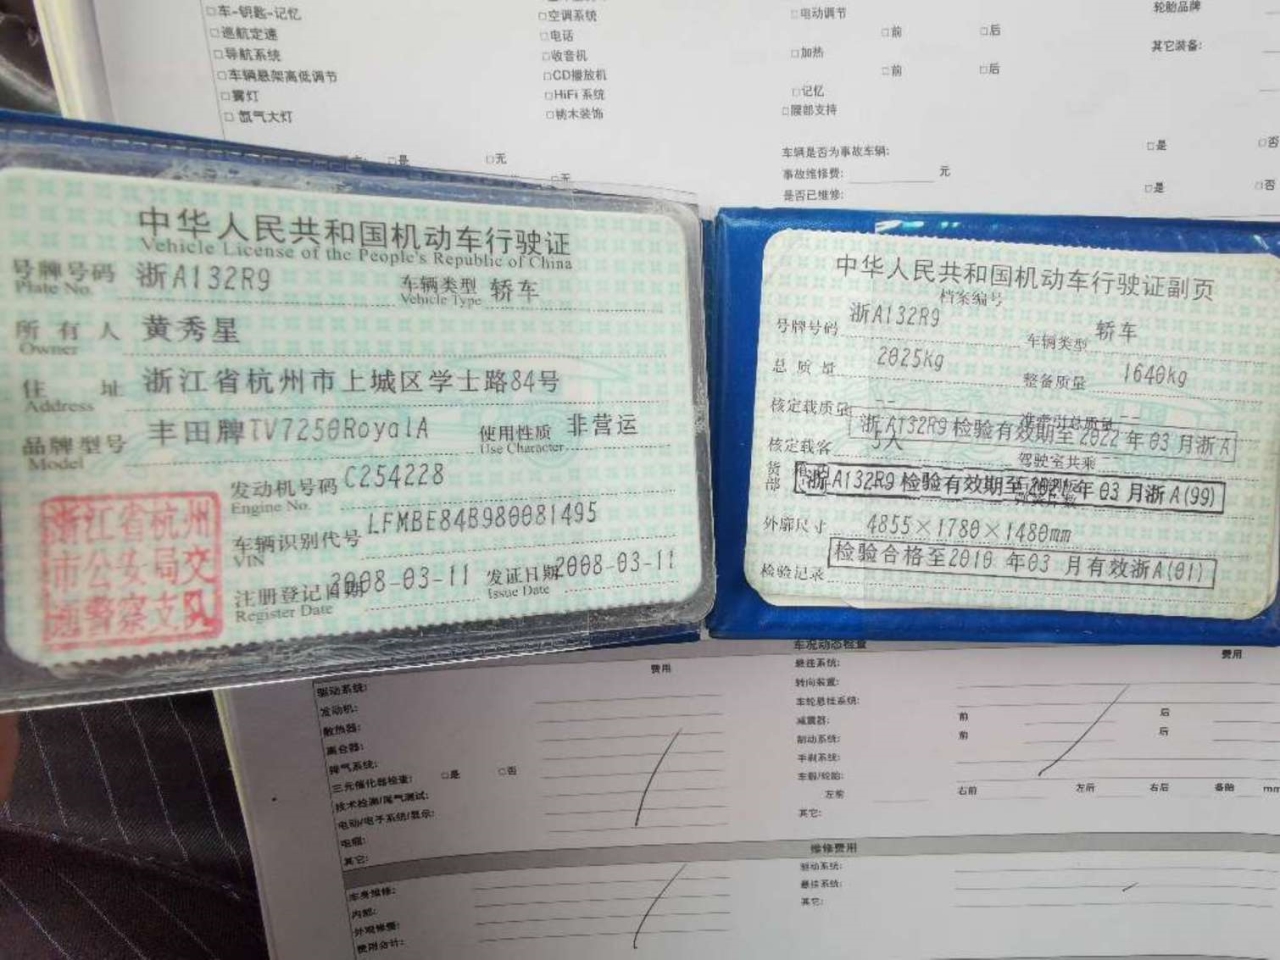 □车-钥匙-记忆
□巡航定速
□导航系统
□车辆悬架高低调节
□雾灯
□氙气大灯
□空调系统
□电话
□收音机
□CD播放机
□HiFi 系统
□桃木装饰
□电动调节
□前 □后
□加热
□前 □后
□记忆
□腰部支持
轮胎品牌
其它装备:
□是 □无
□无
车辆是否为事故车辆: □是 □否
事故维修费: 元
是否已维修: □是 □否
中华人民共和国机动车行驶证
Vehicle License of the People's Republic of China
号牌号码 浙A132R9 车辆类型 轿车
Plate No. Vehicle Type
所有人 黄秀星
Owner
住址 浙江省杭州市上城区学士路84号
Address
品牌型号 丰田牌TV7250RoyalA 使用性质 非营运
Model Use Character
发动机号码 C254228
Engine No.
车辆识别代号 LFMBE84B980081495
VIN
注册登记日期 2008-03-11 发证日期 2008-03-11
Register Date Issue Date
浙江省杭州
市公安局交
通警察支队
中华人民共和国机动车行驶证副页
档案编号
号牌号码 浙A132R9 车辆类型 轿车
总质量 2025kg 整备质量 1640kg
核定载质量 -- 准牵引总质量 --
浙A132R9 检验有效期至2022年03月浙A
核定载客 5人 驾驶室共乘
浙A132R9 检验有效期至2021年03月浙A(99)
外廓尺寸 4855×1780×1480mm
检验合格至2010年03月有效浙A(01)
检验记录
费用
驱动系统:
发动机:
散热器:
离合器:
排气系统:
三元催化器检查: □是 □否
技术检测/尾气测试:
电动/电子系统/显示:
电瓶:
其它:
车况动态检查
费用
悬挂系统:
转向装置:
车轮悬挂系统:
减震器: 前 后
制动系统: 前 后
手刹系统:
车辋/轮胎:
左前 右前 左后 右后 备胎 mm
其它:
维修费用
车身维修:
内部:
外观维修:
费用合计:
驱动系统:
悬挂系统:
其它: